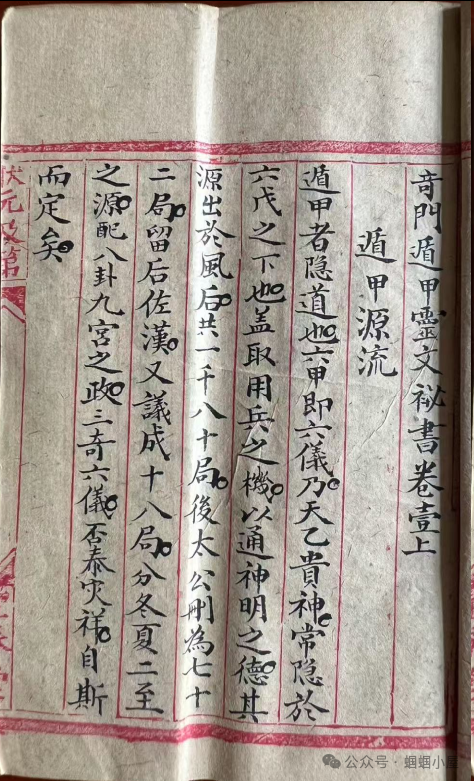 奇門遁甲靈文秘書卷壹上
遁甲源流
遁甲者隐道也。六甲即六儀。乃天乙貴神。常隐於
六戊之下也。盖取用兵之機。以通神明之德。其
源出於風后。共一千八十局。後太公刪為七十
二局。留后佐漢。又議成十八局。分冬夏二至
之源。配八卦九宮之政。三奇六儀。否泰灾祥。自斯
而定矣。
公众号·蝈蝈小